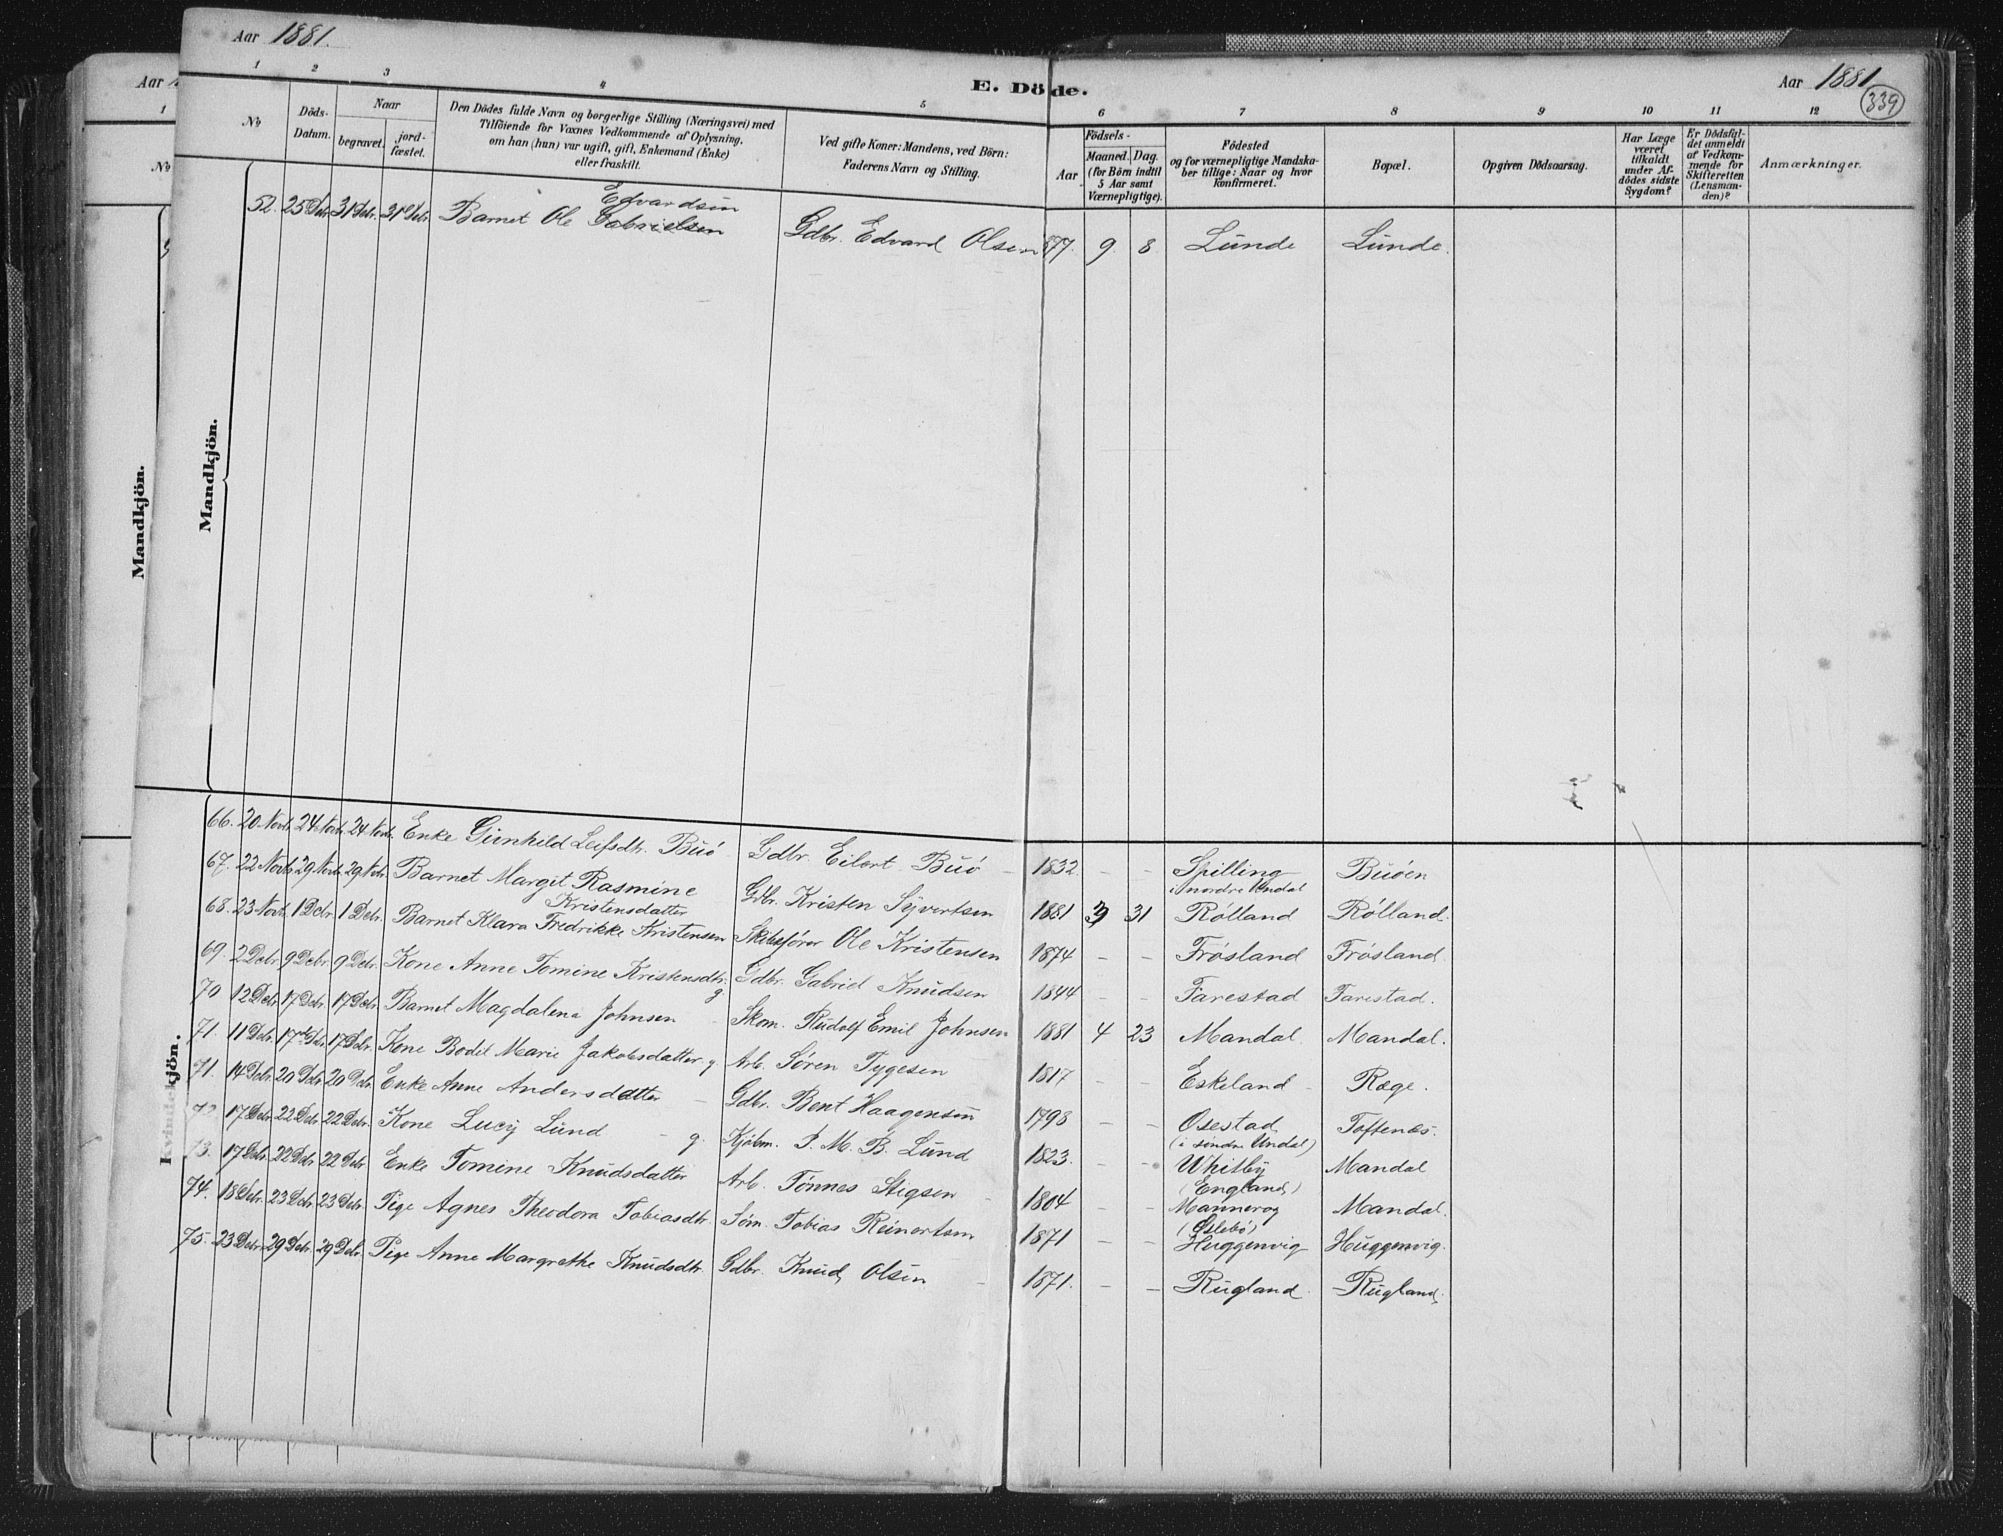 Aar 1881.
E. Döde.
Aar 1881
339
1 2 3 4 5 6 7 8 9 10 11 12
No
Döds-Datum.
Naar
begravet. jordfæstet.
Den Dödes fulde Navn og borgerlige Stilling (Næringsvei) med
Tilföiende for Voxnes Vedkommende af Oplysning,
om han (hun) var ugift, gift, Enkemand (Enke)
eller fraskilt.
Ved gifte Koner: Mandens, ved Börn:
Faderens Navn og Stilling.
Födsels-
Aar
Maaned. Dag.
(for Börn indtil
5 Aar samt
Værnepligtige).
Födested
og for værnepligtige Mandska-
ber tillige: Naar og hvor
konfirmeret.
Bopæl.
Opgiven Dödsaarsag.
Har Læge
været
tilkaldt
under Af-
dödes sidste
Sygdom?
Er Dödsfal-
det anmeldt
af Vedkom-
mende for
Skifteretten
(Lensman-
den)?
Anmærkninger.
Aar
1
No
Mandkjön.
Mandkjön.
Edvardsen
52. 25 Dcbr. 31 Dcbr. 31 Dcbr. Barnet Ole Gabrielsen Gdbr. Edvard Olsen 1877. 9. 8 Lunde Lunde.
Kvindekjön.
66. 20 Novb. 24 Novb. 24 Novb. Enke Gunhild Leifsdtr. Buö Gdbr. Eilert Buö 1832. – – Spilling Buöen
i nordre Undal
67. 22 Novb. 29 Novb. 29 Nvbr. Barnet Margit Rasmine Gdbr. Kristen Syvertsen 1881 3 31 Rölland Rölland.
Kristensdatter
68. 23 Novb. 1 Dcbr. 1 Dcbr. Barnet Klara Fredrikke Kristensen Skibsfören Ole Kristensen 1874 – – Frösland Frösland.
69. 2 Dcbr. 9 Dcbr. 9 Dcbr. Kone Anne Tomine Kristensdtr. g Gdbr. Gabriel Knudsen 1844 – – Farestad Farestad.
70 12 Dcbr. 17 Dcbr. 17 Dcbr. Barnet Magdalena Johnsen – Skom. Rudolf Emil Johnsen 1881 4 23 Mandal Mandal.
71. 11 Dcbr. 17 Dcbr. 17 Dcbr. Kone Bodil Marie Jakobsdatter g Arb. Sören Tygesen 1817 – – Eskeland Ræge.
71. 14 Dcbr. 20 Dcbr. 20 Dcbr. Enke Anne Andersdatter – Gdbr. Bent Haagensen 1798 – – Osestad Toftenæs.
(i söndre Undal)
72. 17 Dcbr. 22 Dcbr. 22 Dcbr. Kone Lucy Lund – g. Kjöbm. P. M. B. Lund 1823. – – Whitby Mandal
(England)
73. 17 Dcbr. 22 Dcbr. 22 Dcbr. Enke Tomine Knudsdatter Arb. Tönnes Stigsen 1804 – – Mandal.
74. 18 Dcbr. 23 Dcbr. 23 Dcbr. Pige Agnes Theodora Tobiasdtr. Söm. Tobias Reinertsen 1871 – – Huggenvig Huggenvig.
75. 23 Dcbr. 29 Dcbr. 29 Dcbr. Pige Anne Margrethe Knudsdtr. Gdbr. Knud Olsen – 1871. – – Rugland. Rugland.